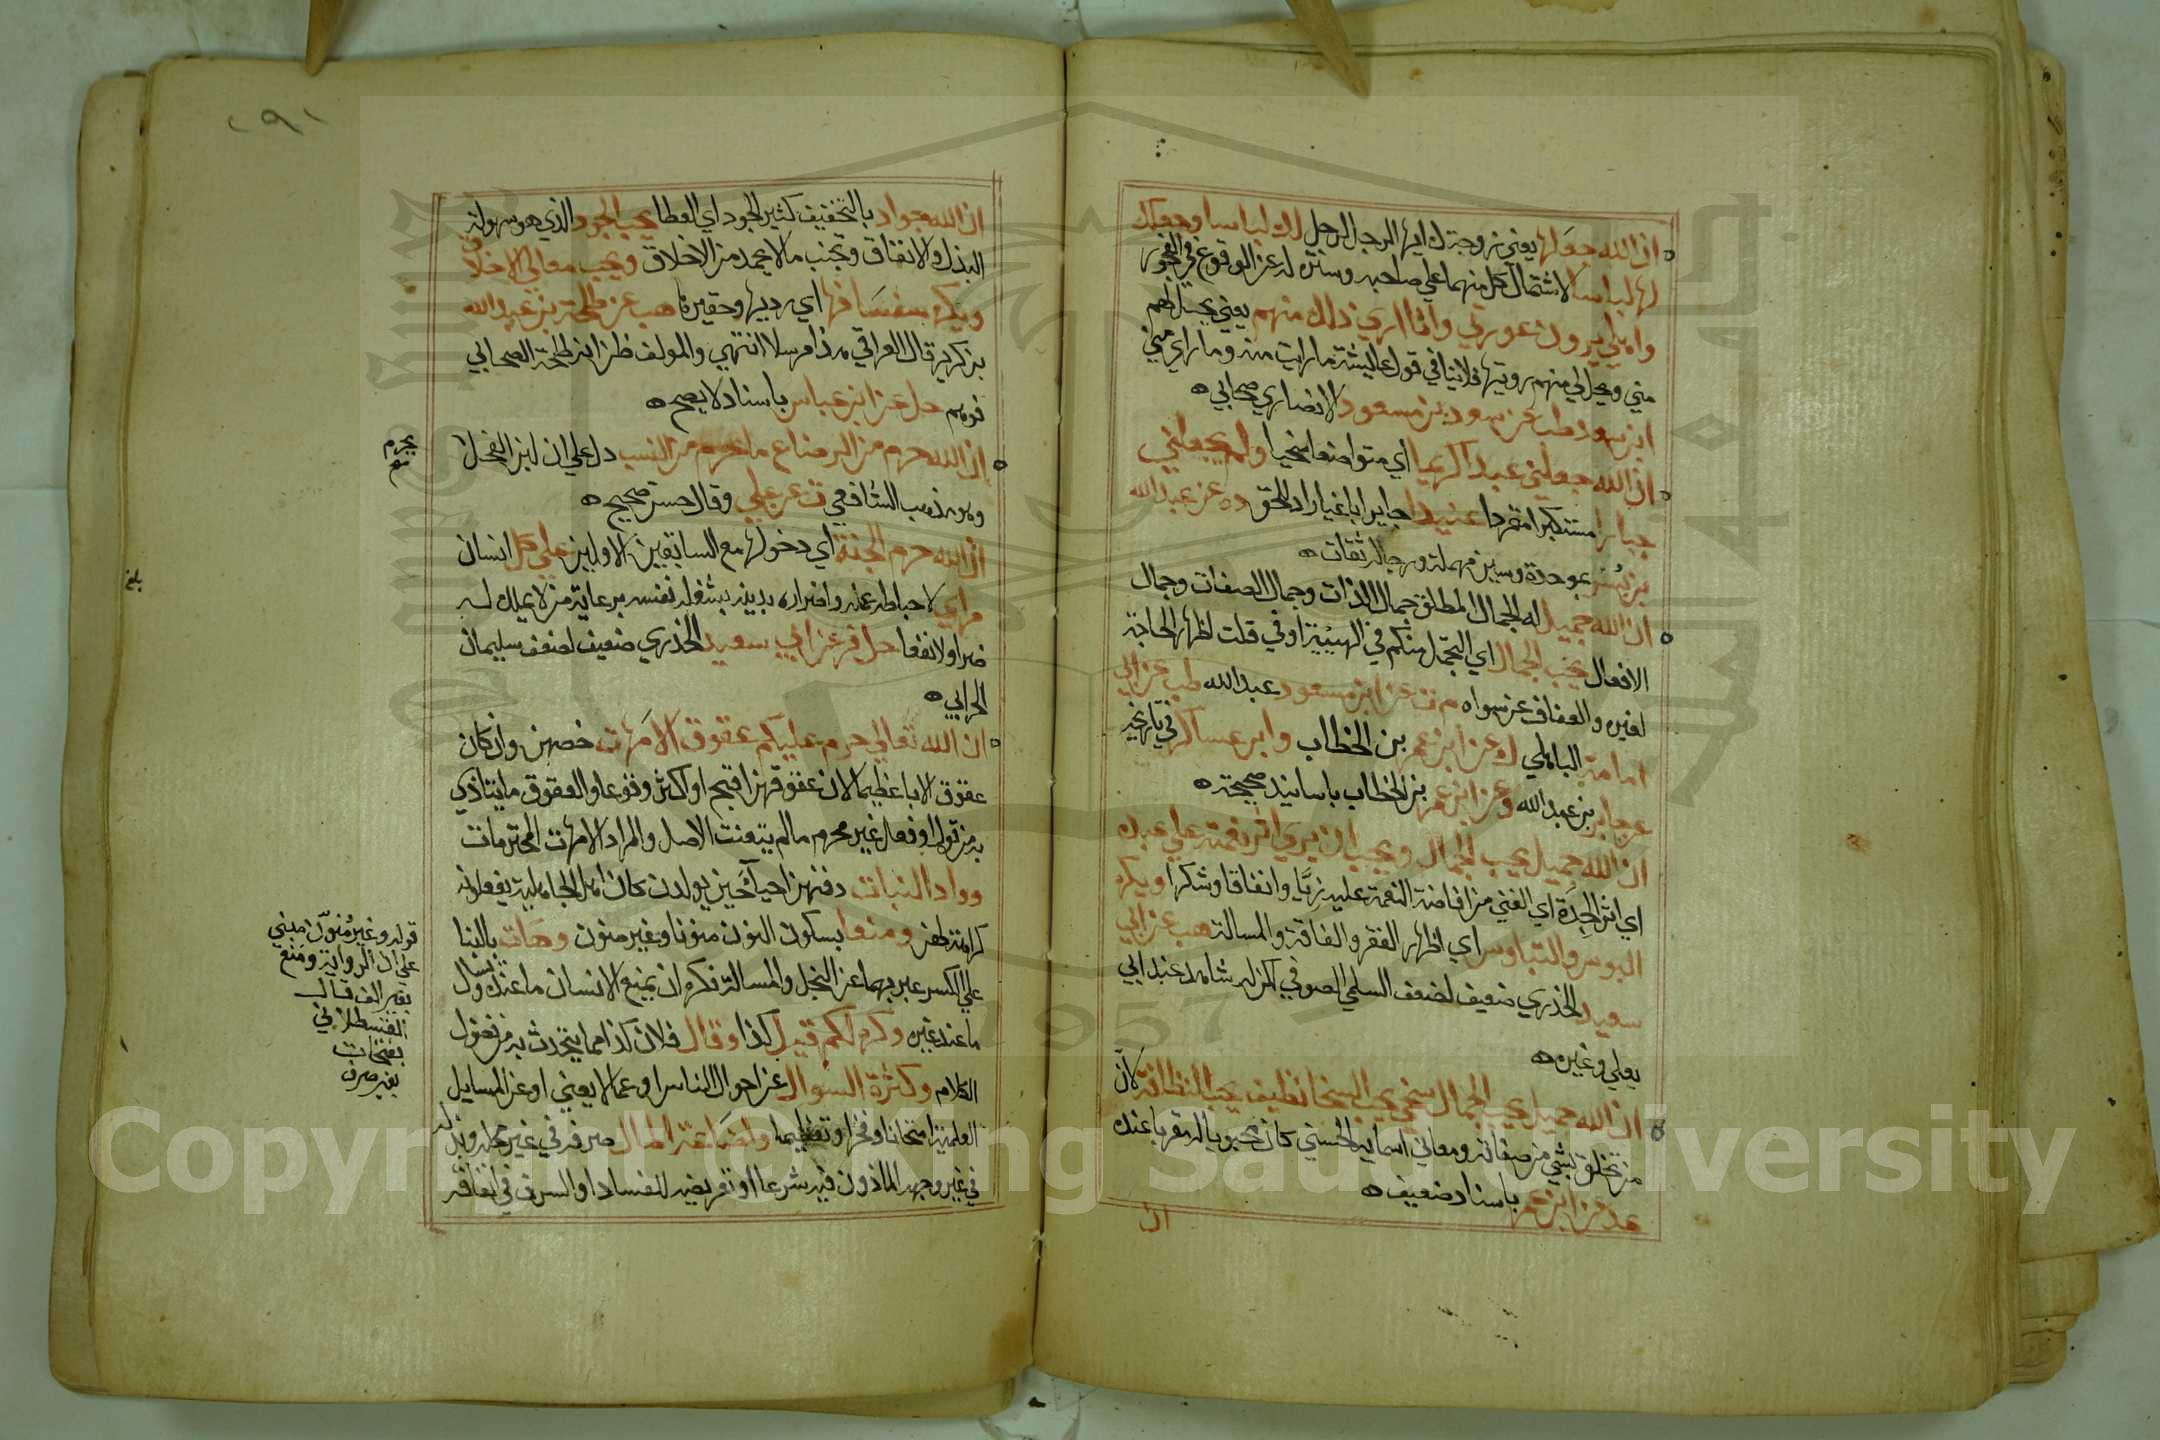 ان الله جعلها يعني زوجتك ايها الرجل الرجل لك لباسا وجعلك
لها لباسا لاشتمال كل منهما علي صاحبه وستره له عن الوقوع في الفجور
واهلي يرون عورتي وانا اري ذلك منهم يعني يحل لهم
مني ويحل لي منهم رويتها فلا ينافي قول عايشة ما رايت منه وما راي مني
ابن سعد طب عن سعد بن مسعود الانصاري صحابي ه
ان الله جعلني عبدا كريما اي متواضعا سخيا ولم يجعلني
جبارا مستكبرا متمردا عنيدا جايرا باغيا راد للحق د ه عن عبد الله
بن بُسْر بموحدة وسين مهملة ورجاله ثقات ه
ان الله جميل له الجمال المطلق جمال الذات وجمال الصفات وجمال
الافعال يحب الجمال اي التجمل منكم في الهيئة او في قلت اظهار الحاجة
لغيره والعفاف عن سواه م ت عن ابن مسعود عبد الله طب عن ابي
امامة الباهلي ك عن ابن عمر بن الخطاب وابن عساكر في تاريخه
عن جابر بن عبد الله وعن ابن عمر بن الخطاب باسانيد صحيحة ه
ان الله جميل يحب الجمال ويحب ان يري اثر نعمته علي عبده
اي اثر الجِدَة اي الغني من افاضة النعمة عليه زيًّا وانفاقا وشكرا ويكره
البوس والتباوس اي اظهار الفقر والفاقة والمسالة هب عن ابي
سعيد الخدري ضعيف لضعف السلمي الصوفي لكن له شاهد عند ابي
يعلي وغيره ه
ان الله جميل يحب الجمال سخي يحب السخا نظيف يحب النظافة لان
من تخلق بشي من صفاته ومعاني اسمايه الحسني كان محبوبا له مقربا عنده
عد عن ابن عمر باسناد ضعيف ه
ان
١٩١
ان الله جواد بالتخفيف كثير الجود اي العطا يحب الجود الذي هو سهولة
البذل والانفاق وتجنب ما لا يحمد من الاخلاق ويحب معالي الاخلاق
ويكره سفسَافها اي رديها وحقيرها هب عن طلحة بن عبيد الله
بن كريز قال العراقي هذا مرسل انتهي والمولف ظن انه طلحة الصحابي
فوهم حل عن ابن عباس باسناد لا يصح ه
ان الله حرم من الرضاع ما حرم من النسب دل علي ان لبن الفحل
يحرم
وهو مذهب الشافعي ت عن علي وقال حسن صحيح ه
ان الله حرم الجنة اي دخولها مع السابقين الاولين علي كل انسان
بلغ
مرايي لاحباطه عمله واضراره بدينه بشغله نفسه برعاية من لا يملك له
ضرا ولا نفعا حل فر عن ابي سعيد الخدري ضعيف لضعف سليمان
الحرابي ه
ان الله تعالي حرم عليكم عقوق الامهات خصهن وان كان
عقوق الابا عظيما لان عقوقهن اقبح او اكثر وقوعا والعقوق ما يتاذي
به من قول او فعل غير محرم ما لم يتعنت الاصل والمراد الامهات المحترمات
وواد البنات دفنهن احياً حين يولدن كان اهل الجاهلية يفعلونه
كراهة لهن ومنعا بسكون النون منونا وبغير منون وهَات بالبنا
علي الكسر عبر بهما عن البخل والمسالة فكره ان يمنع الانسان ما عنده ويسال
ما عند غيره وكره لكم قيل كذا وقال فلان كذا مما يتحدث به من فضول
الكلام وكثرة السوال عن احوال الناس او عما لا يعني او عن المسايل
العلمية امتحانا وفخرا وتعاظيما واضاعة المال صرفه في غير حله وبذله
في غير وجهه الماذون فيه شرعا او تعريضه للفساد او السرف في انفاقه
قوله وغير مُنَوّن مبني
علي ان الرواية ومنع
بغير الف قال
القسطلاني
بفتحات
بغير صرف
Copyright © King Saud University
1957